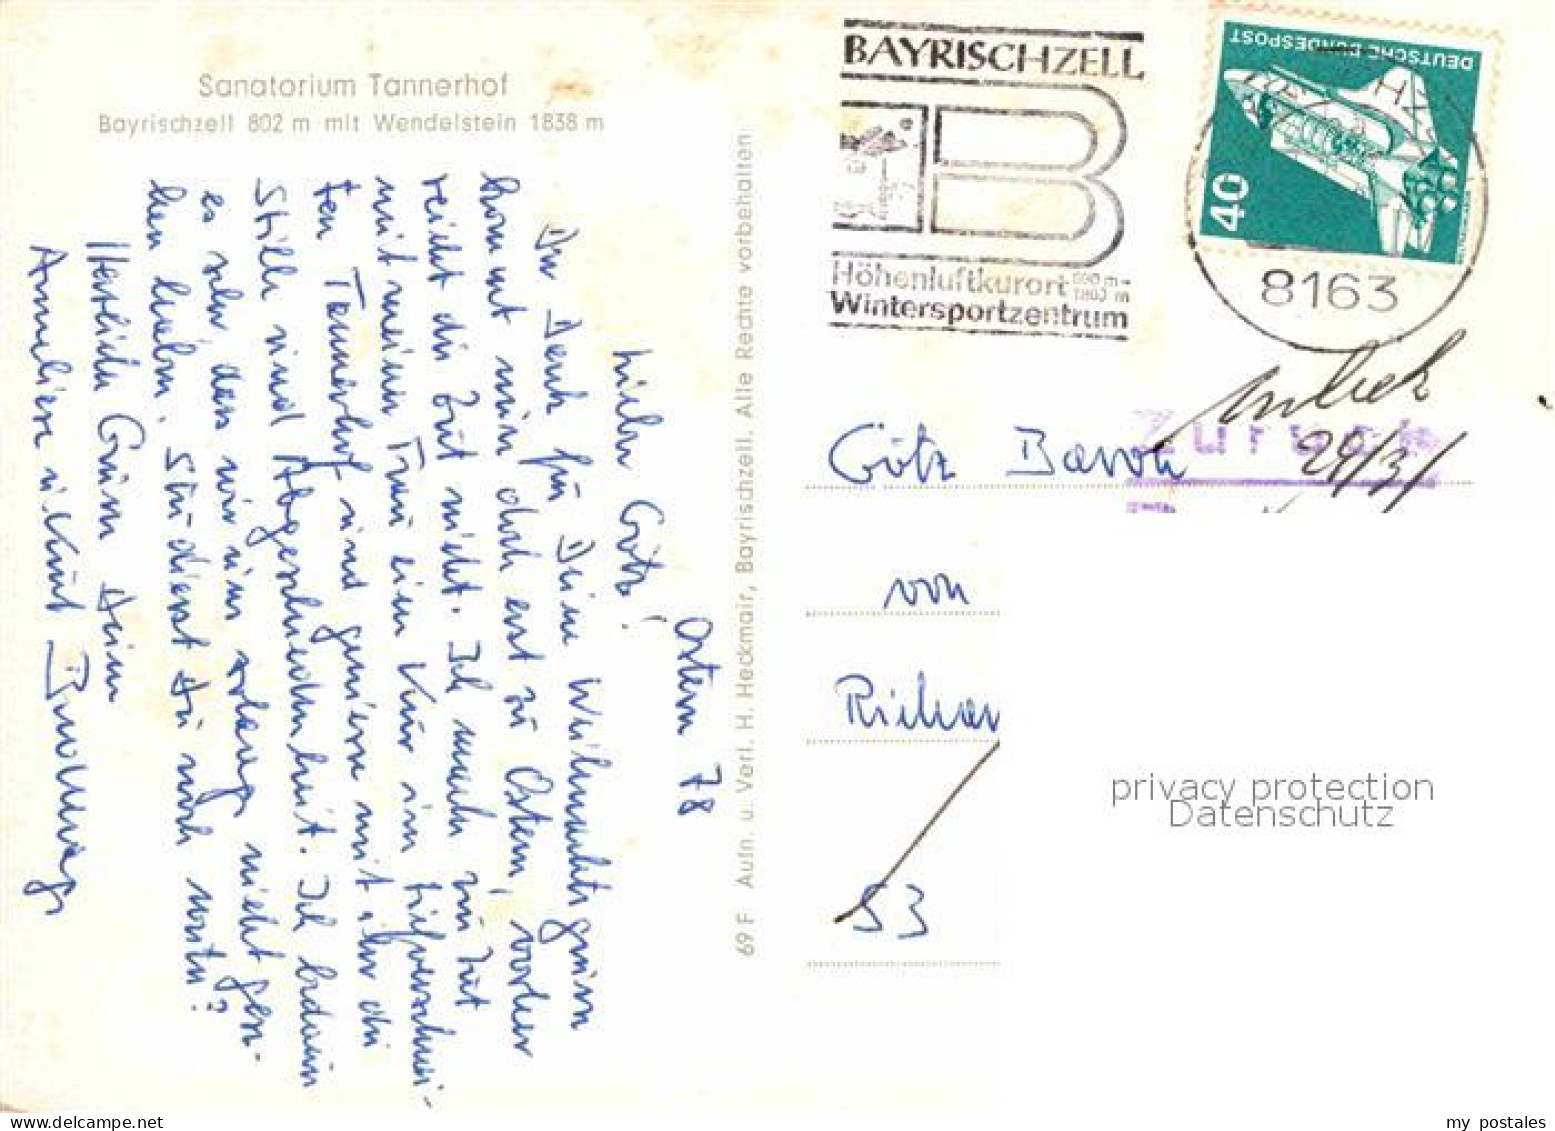 Sanatorium Tannerhof
Bayrischzell 802 m mit Wendelstein 1838 m
Ostern 78
Lieber Götz!
Der Dank für Deine Weihnachtsgrüsse
kommt nun doch erst zu Ostern, vorher
reicht die Zeit nicht. Ich mache zur Zeit
mit meiner Frau eine Kur im tiefverschnei-
ten Tannerhof und geniesse mit ihr die
Stille und Abgeschiedenheit. Ich bedaure
es sehr, dass wir uns solange nicht gese-
hen haben. Studierst Du noch weiter?
Herzliche Grüsse Deine
Anneliese u. Kurt
69 F Aufn. u. Verl. H. Heckmair, Bayrischzell. Alle Rechte vorbehalten.
BAYRISCHZELL
B
Höhenluftkurort 800 m - 1800 m
Wintersportzentrum
DEUTSCHE BUNDESPOST
40
8163
Zurück
29/3/
Götz
von
Richar
53
privacy protection
Datenschutz
my postales